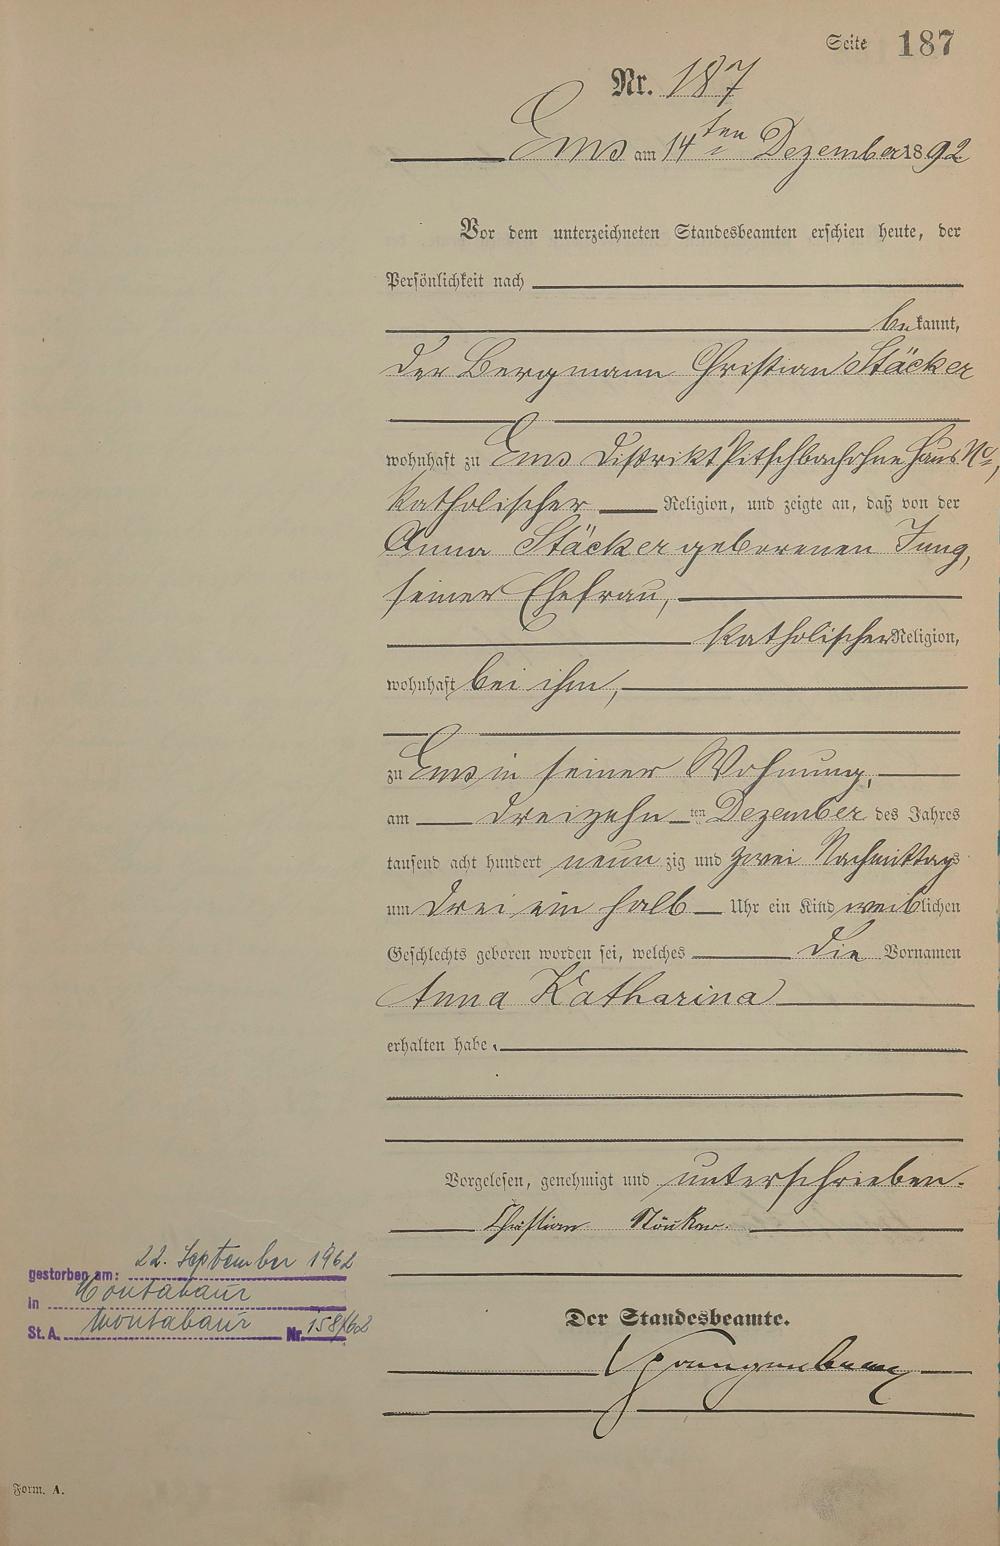 Seite 187
Nr. 187
Ems am 14ten Dezember 1892
Vor dem unterzeichneten Standesbeamten erschien heute, der
Persönlichkeit nach
bekannt,
der Bergmann Christian Stäcker
wohnhaft zu Ems Distrikt Pitschbach ohne Haus No,
katholischer Religion, und zeigte an, daß von der
Anna Stäcker geborenen Jung,
seiner Ehefrau,
katholischer Religion,
wohnhaft bei ihm,
zu Ems in seiner Wohnung,
am dreizehnten Dezember des Jahres
tausend acht hundert neunzig und zwei Nachmittags
um drei ein halb Uhr ein Kind weiblichen
Geschlechts geboren worden sei, welches die Vornamen
Anna Katharina
erhalten habe.
Vorgelesen, genehmigt und unterschrieben.
Christian
gestorben am: 22. September 1962
in Montabaur
St. A. Montabaur Nr. 158/62
Der Standesbeamte.
Form. A.